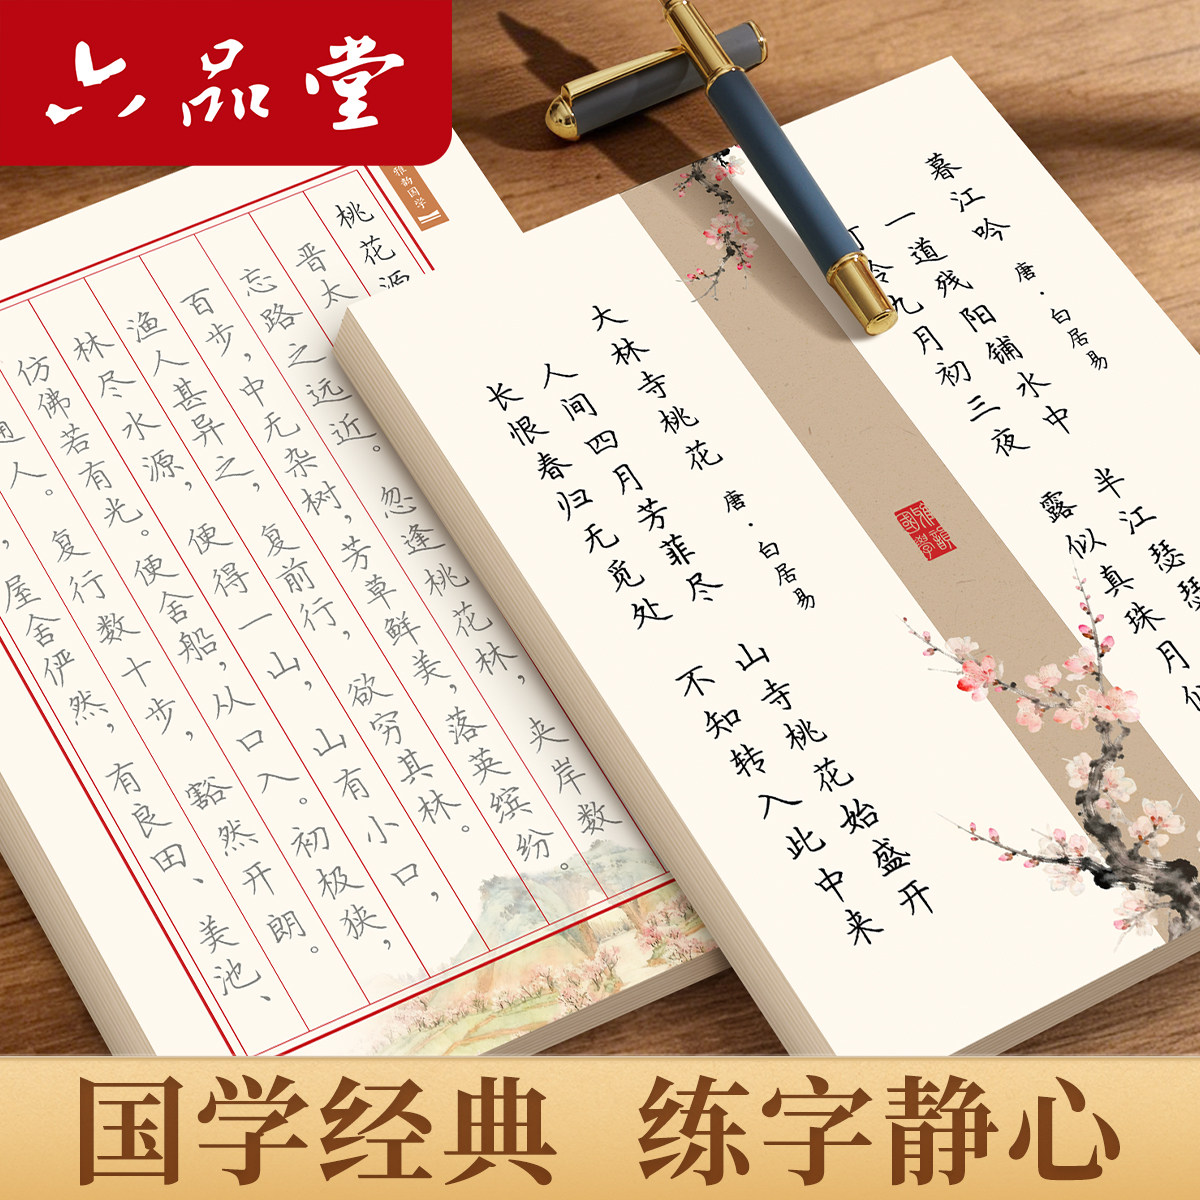 六品堂
雅韵国学
桃花源
晋太
忘路之远近。忽逢桃花林，夹岸数
百步，中无杂树，芳草鲜美，落英缤纷。
渔人甚异之，复前行，欲穷其林。
林尽水源，便得一山，山有小口，
仿佛若有光。便舍船，从口入。初极狭，
通人。复行数十步，豁然开朗。
，屋舍俨然，有良田、美池、
暮江吟 唐·白居易
一道残阳铺水中 半江瑟瑟
九月初三夜 露似真珠月似
雅韻國學
大林寺桃花 唐·白居易
人间四月芳菲尽 山寺桃花始盛开
长恨春归无觅处 不知转入此中来
国学经典 练字静心